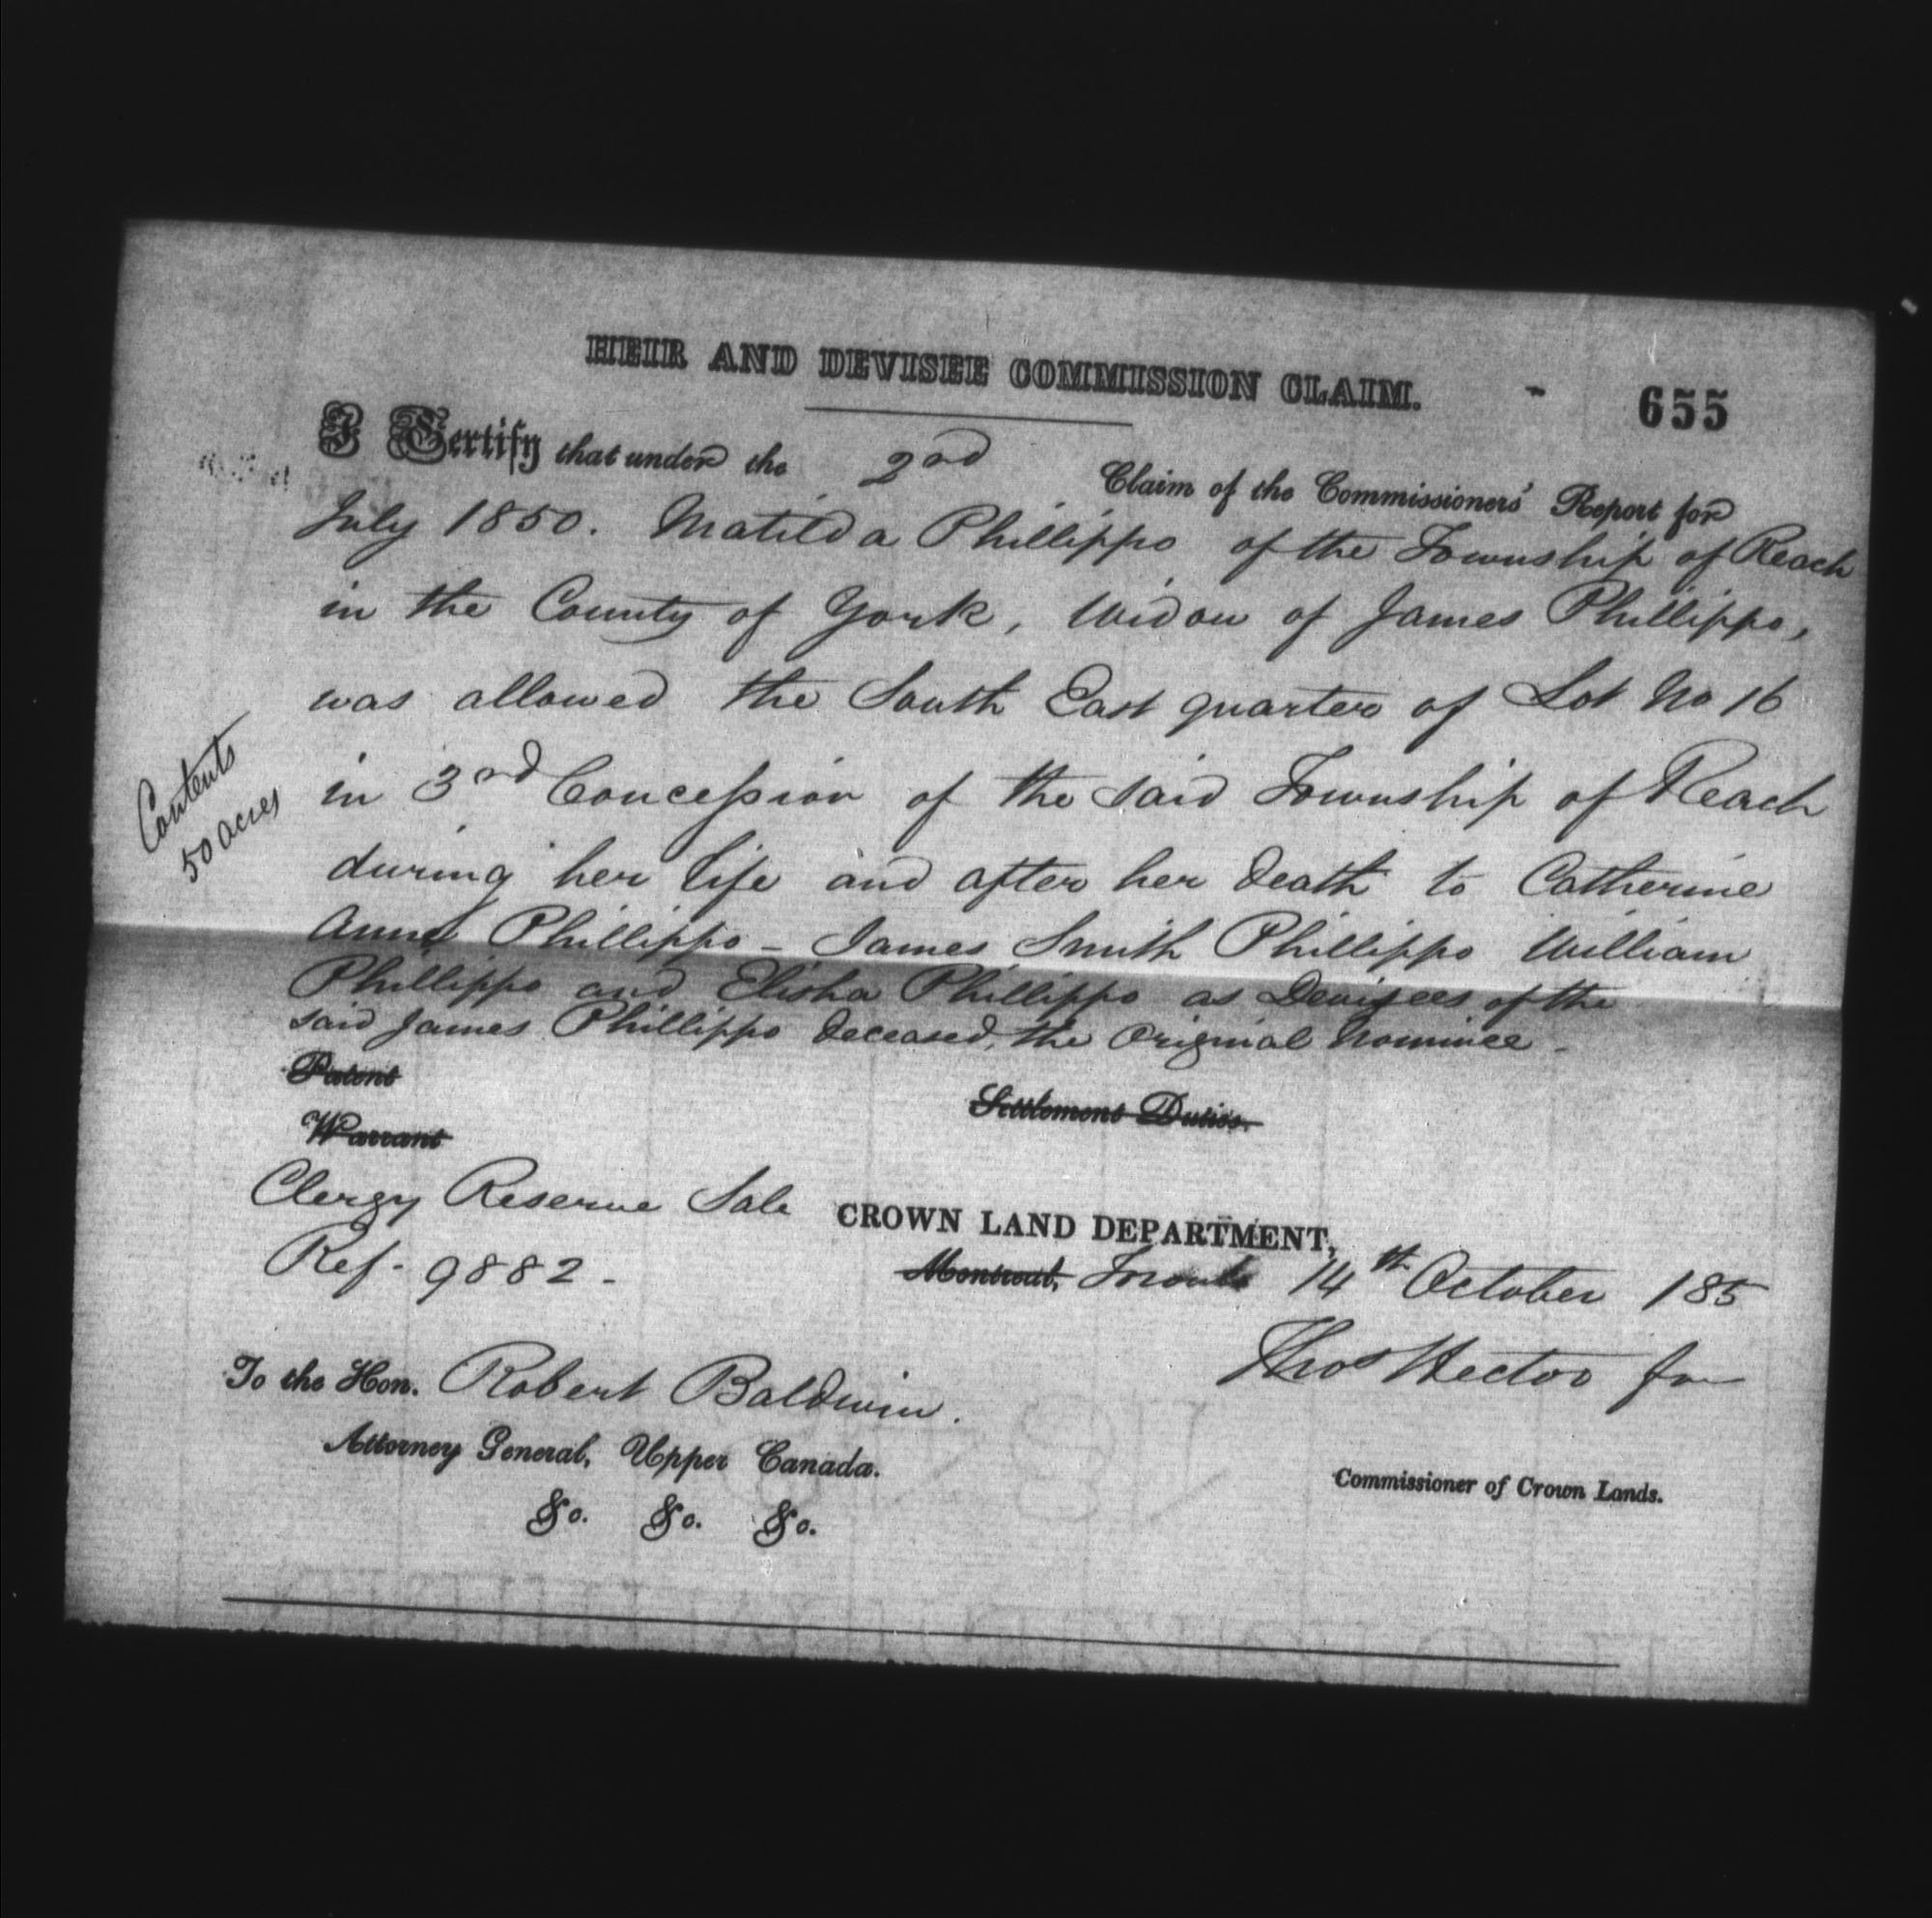 HEIR AND DEVISEE COMMISSION CLAIM. - 655
I Certify that under the 2nd Claim of the Commissioners' Report for
July 1850. Matilda Phillippo of the Township of Reach
in the County of York, Widow of James Phillippo,
was allowed the South East quarter of Lot No 16
in 3rd Concession of the said Township of Reach
during her life and after her death to Catherine
Anne Phillippo - James Smith Phillippo William
Phillippo and Elisha Phillippo as Devisees of the
said James Phillippo deceased, the Original Nominee -
Contents
50 acres
Patent
Warrant
Settlement Duties.
Clergy Reserve Sale
Ref. 9882 -
CROWN LAND DEPARTMENT,
Montreal, Toronto 14th October 185
Thos Hector for
To the Hon. Robert Baldwin.
Attorney General, Upper Canada.
&c. &c. &c.
Commissioner of Crown Lands.